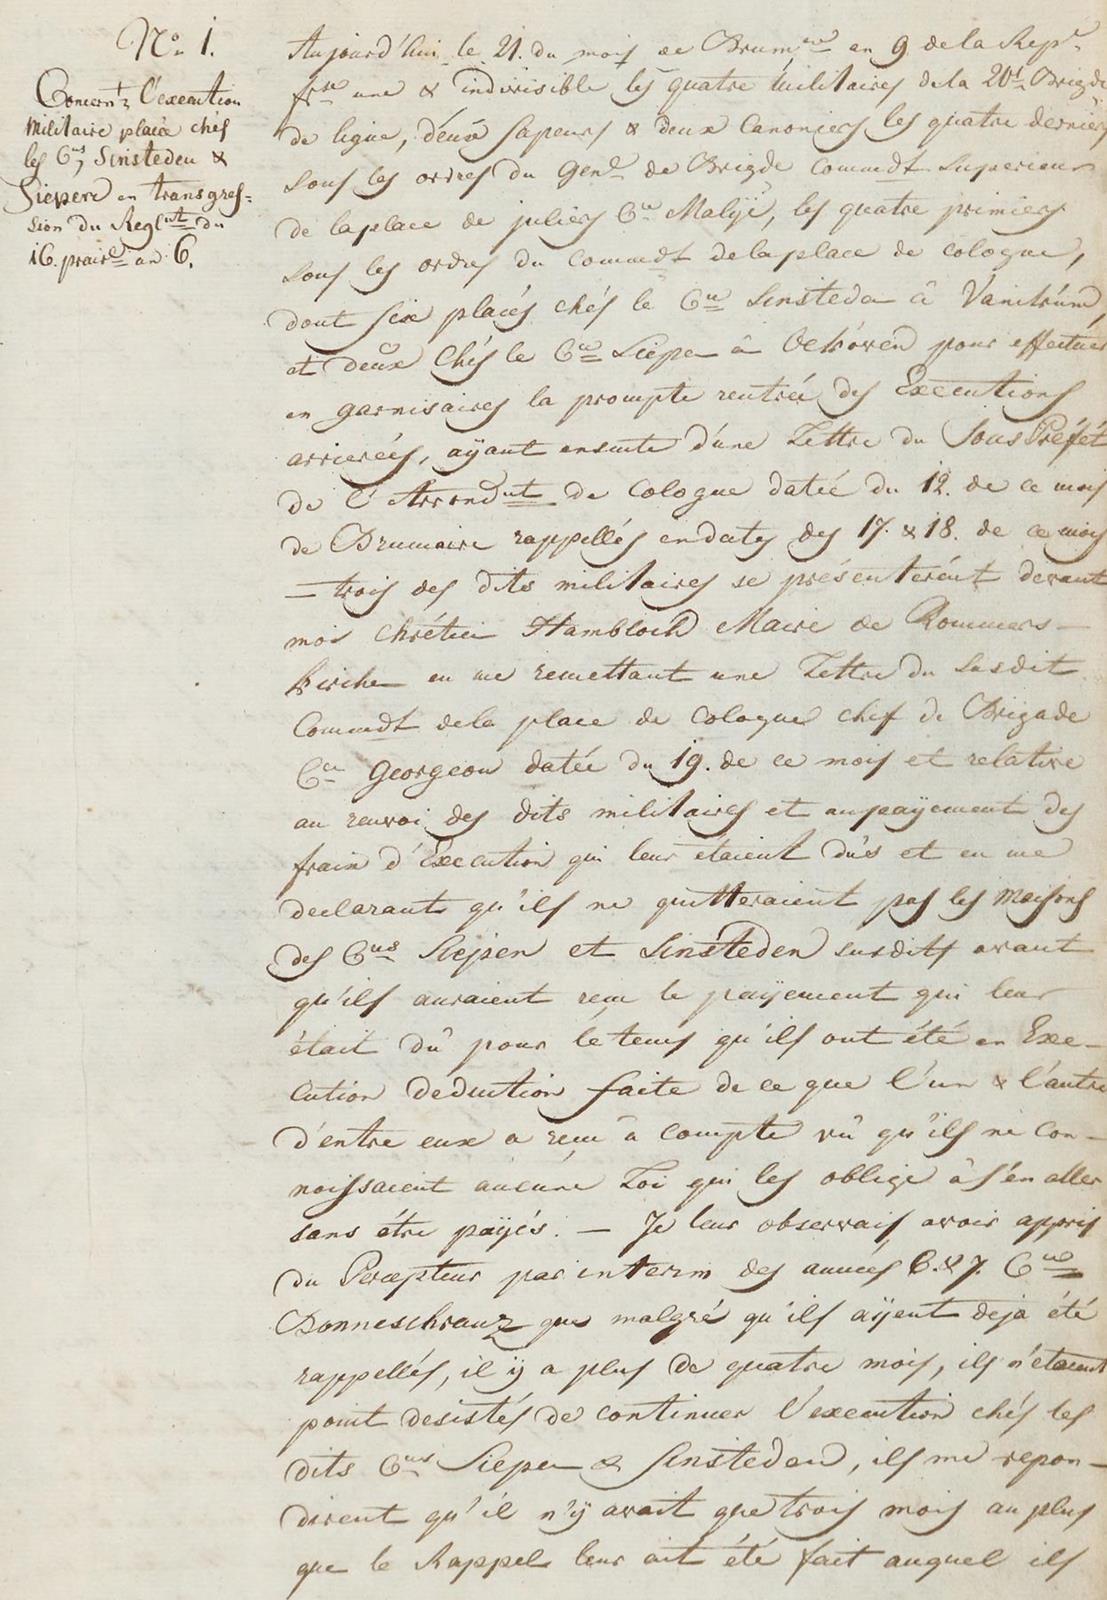 No 1.
Concernt. l'execution
militaire placée chés
les Cns, Sinsteden &
Siepen en transgres=
sion du Reglnt du
16. prairl an 6.
Aujourd'hui le 21. du mois de Brumre an 9 de la Repe
frse une & indivisible les quatre militaires de la 20e Brigde
de ligne, deux sapeurs & deux canoniers les quatre derniers
sous les ordres du Genl de Brigde Commdt Superieur
de la place de juliers Cn Malye, les quatre primiers
sous les ordres du Commdt de la place de cologne,
dont six placés chés le Cn Sinsteden à Vanikum,
et deux chés le Cn Siepen à Oekoven pour effectuer
en garnisaires la prompte rentrée des Executions
arrierées, aÿant ensuite d'une Lettre du Sous Préfét
de l'Arrondnt de Cologne datée du 12. de ce mois
de Brumaire rappellés en dates des 17. & 18. de ce mois
— trois des dits militaires se présenterént devant
moi chrétien Hambloch Maire de Rommers-
kirchen en me remettant une Lettre du susdit
Commdt de la place de Cologne chef de Brigade
Cn Georgeon datée du 19. de ce mois et relative
au renvoi des dits militaires et au paÿement des
frais d'Execution qui leur étaient dûs et en me
declarant qu'ils ne quitteraient pas les maisons
des Cns Siepen et Sinsteden susdits avant
qu'ils auraient reçu le paÿement qui leur
était dû pour le tems qu'ils ont été en Exe-
cution deduction faite de ce que l'un & l'autre
d'entre eux a reçu à compte vû qu'ils ne con-
noissaient aucune Loi qui les oblige à s'en aller
sans étre paÿés. — Je leur observais, avoir appris
du Percepteur par interim des années 6. & 7. Cn
Donneschranz que malgré qu'ils aÿent deja été
rappellés, il ÿ a plus de quatre mois, ils n'etaient
point desistés de continuer l'execution chés les
dits Cns Siepen & Sinsteden, ils me repon-
dirent qu'il n'ÿ avait que trois mois au plus
que le Rappel leur ait été fait auquel ils